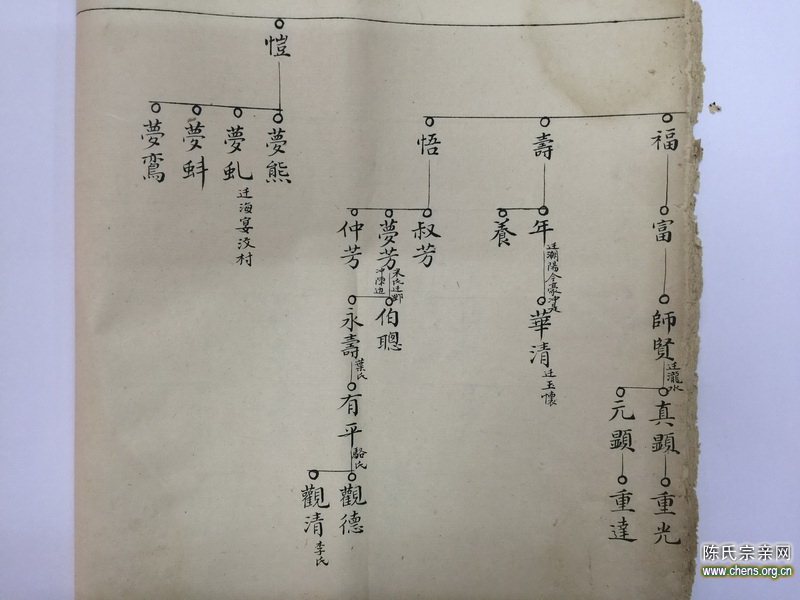 福
富
師賢
迁瀧水
真顯
重光
元顯
重達
壽
年
迁潮陽
華清
迁玉懷
養
悟
叔芳
夢芳
伯聰
仲芳
永壽
葉氏
有平
駱氏
觀德
觀清
李氏
愷
夢熊
夢虬
迁海宴汶村
夢蚪
夢鸞
陈氏宗亲网
www.chens.org.cn